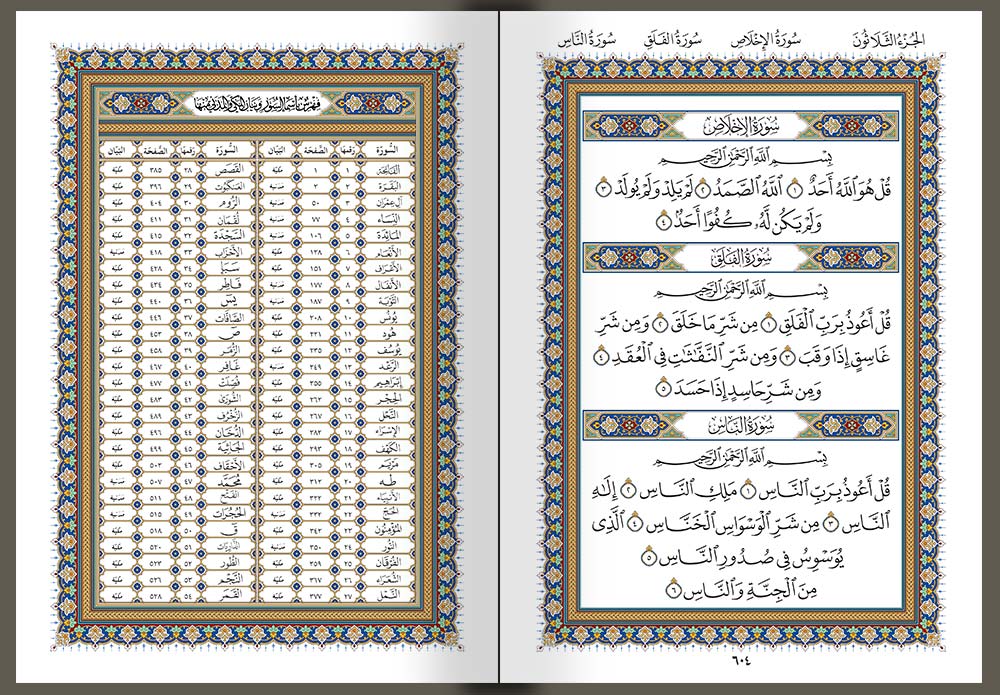 الجُزْءُ الثَّلَاثُونَ سُورَةُ الإِخْلَاصِ سُورَةُ الفَلَقِ سُورَةُ النَّاسِ
سُورَةُ الإِخْلَاصِ
بِسْمِ ٱللَّهِ ٱلرَّحْمَٰنِ ٱلرَّحِيمِ
قُلْ هُوَ ٱللَّهُ أَحَدٌ ١ ٱللَّهُ ٱلصَّمَدُ ٢ لَمْ يَلِدْ وَلَمْ يُولَدْ ٣
وَلَمْ يَكُن لَّهُۥ كُفُوًا أَحَدٌۢ ٤
سُورَةُ الفَلَقِ
بِسْمِ ٱللَّهِ ٱلرَّحْمَٰنِ ٱلرَّحِيمِ
قُلْ أَعُوذُ بِرَبِّ ٱلْفَلَقِ ١ مِن شَرِّ مَا خَلَقَ ٢ وَمِن شَرِّ
غَاسِقٍ إِذَا وَقَبَ ٣ وَمِن شَرِّ ٱلنَّفَّٰثَٰتِ فِي ٱلْعُقَدِ ٤
وَمِن شَرِّ حَاسِدٍ إِذَا حَسَدَ ٥
سُورَةُ النَّاسِ
بِسْمِ ٱللَّهِ ٱلرَّحْمَٰنِ ٱلرَّحِيمِ
قُلْ أَعُوذُ بِرَبِّ ٱلنَّاسِ ١ مَلِكِ ٱلنَّاسِ ٢ إِلَٰهِ
ٱلنَّاسِ ٣ مِن شَرِّ ٱلْوَسْوَاسِ ٱلْخَنَّاسِ ٤ ٱلَّذِي
يُوَسْوِسُ فِي صُدُورِ ٱلنَّاسِ ٥
مِنَ ٱلْجِنَّةِ وَٱلنَّاسِ ٦
٦٠٤
فهرس أسماء السور وبيان المكي والمدني منها
السُّورَة رَقمهَا الصَّفحَة البَيَان السُّورَة رَقمهَا الصَّفحَة البَيَان
الفَاتِحَة ١ ١ مكيّة القَصَص ٢٨ ٣٨٥ مكيّة
البَقَرَة ٢ ٢ مدنيّة العَنكبوت ٢٩ ٣٩٦ مكيّة
آل عِمرَان ٣ ٥٠ مدنيّة الرُّوم ٣٠ ٤٠٤ مكيّة
النِّسَاء ٤ ٧٧ مدنيّة لُقمَان ٣١ ٤١١ مكيّة
المَائدة ٥ ١٠٦ مدنيّة السَّجْدَة ٣٢ ٤١٥ مكيّة
الأنعَام ٦ ١٢٨ مكيّة الأحزَاب ٣٣ ٤١٨ مدنيّة
الأعرَاف ٧ ١٥١ مكيّة سَبَأ ٣٤ ٤٢٨ مكيّة
الأنفَال ٨ ١٧٧ مدنيّة فَاطِر ٣٥ ٤٣٤ مكيّة
التّوبَة ٩ ١٨٧ مدنيّة يسٓ ٣٦ ٤٤٠ مكيّة
يُونُس ١٠ ٢٠٨ مكيّة الصَّافَّات ٣٧ ٤٤٦ مكيّة
هُود ١١ ٢٢١ مكيّة صٓ ٣٨ ٤٥٣ مكيّة
يُوسُف ١٢ ٢٣٥ مكيّة الزُّمَر ٣٩ ٤٥٨ مكيّة
الرَّعْد ١٣ ٢٤٩ مدنيّة غَافِر ٤٠ ٤٦٧ مكيّة
إبراهِيم ١٤ ٢٥٥ مكيّة فُصِّلَت ٤١ ٤٧٧ مكيّة
الحِجْر ١٥ ٢٦٢ مكيّة الشّورَىٰ ٤٢ ٤٨٣ مكيّة
النَّحل ١٦ ٢٦٧ مكيّة الزّخْرُف ٤٣ ٤٨٩ مكيّة
الإسرَاء ١٧ ٢٨٢ مكيّة الدّخَان ٤٤ ٤٩٦ مكيّة
الكهْف ١٨ ٢٩٣ مكيّة الجَاثِيَة ٤٥ ٤٩٩ مكيّة
مَريَم ١٩ ٣٠٥ مكيّة الأحقَاف ٤٦ ٥٠٢ مكيّة
طه ٢٠ ٣١٢ مكيّة محَمَّد ٤٧ ٥٠٧ مدنيّة
الأنبيَاء ٢١ ٣٢٢ مكيّة الفَتْح ٤٨ ٥١١ مدنيّة
الحَج ٢٢ ٣٣٢ مدنيّة الحُجُرَات ٤٩ ٥١٥ مدنيّة
المُؤمِنُون ٢٣ ٣٤٢ مكيّة قٓ ٥٠ ٥١٨ مكيّة
النُّور ٢٤ ٣٥٠ مدنيّة الذّاريَات ٥١ ٥٢٠ مكيّة
الفُرقَان ٢٥ ٣٥٩ مكيّة الطُّور ٥٢ ٥٢٣ مكيّة
الشُّعَرَاء ٢٦ ٣٦٧ مكيّة النَّجْم ٥٣ ٥٢٦ مكيّة
النَّمل ٢٧ ٣٧٧ مكيّة القَمَر ٥٤ ٥٢٨ مكيّة